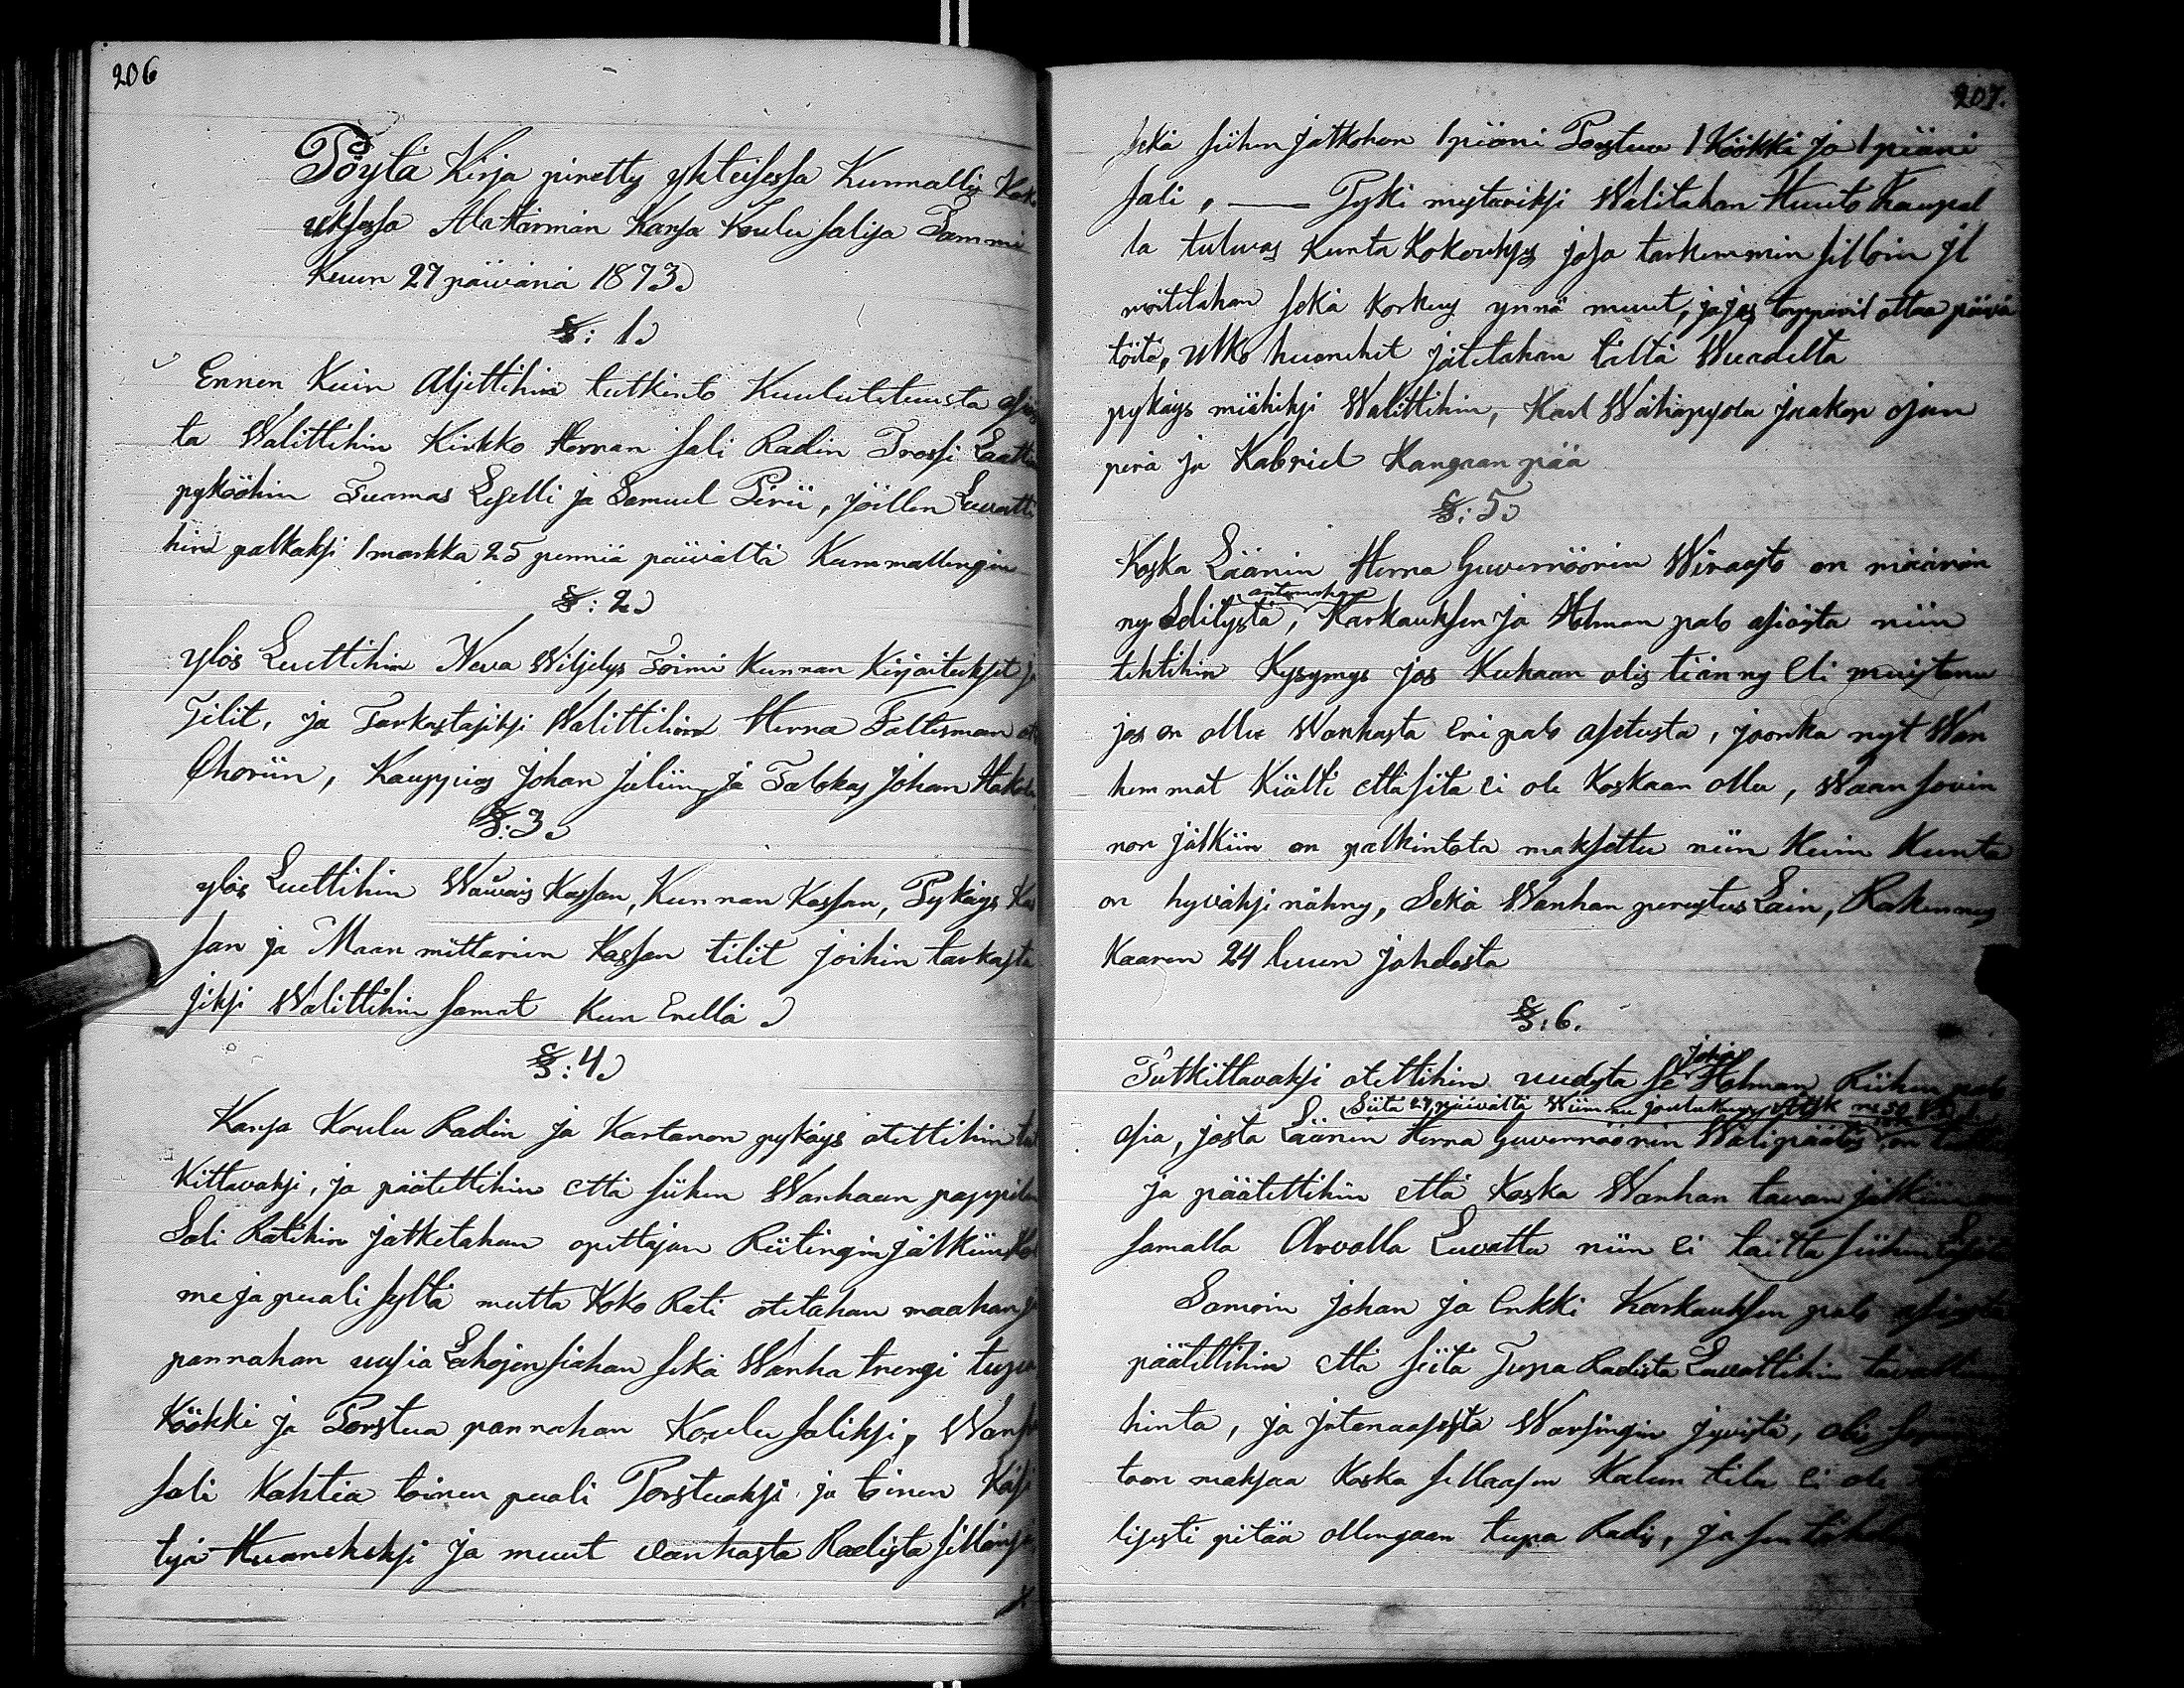 206
Pöytä Kirja piretty yhteisessa Kunnallis Kok
uksessa AlaHärmän Kansa Koulu Salisa Tammi
Kuun 27 päivänä 1873
§: 1
Ennen Kuin Aljettihin tutkinto Kuulutetuusta asiois
ta Walittihin Kirkko Herran Sali Radin Trossi Laatti
pykööhin Tuomas Leselli ja Samuel Pirii, joillen Luvatti
hin palkaksi 1 markka 25 penniä päivältä Kummallengin
§: 2
ylös Luettihin Neva Wiljelys Toimi Kunnan Kirjoitukset ja
Tilit, ja Tarkastajiksi Walittihin Herra Faltisman
Choriin, Kauppias Johan Juliin, ja Talokas Johan Hakola
§: 3
ylös Luettihin Waivais Kassan, Kunnan Kassan, Pykäys Kas
san ja Maan mittariin Kassan tilit joihin tarkasta
jiksi Walittihin samat Kun Enellä
§: 4
Kansa Koulu Radin ja Kartanon pykäys otettihin tut
Kittavaksi, ja päätettihin että siihen Wanhaan pappilan
Sali Ratihin jatketahan opettajan Riitingin jälkiin Kol
me ja puali syltä mutta Koko Rati otetahan maahan ja
pannahan uusia Lahojen siahan sekä Wanha trengi tupa
Köökki ja Porstua pannahan Koulu Saliksi, Wanha
Sali Kahtia toinen puali Porstuaksi ja toinen Käsi
työ Huaneheksi ja muut vanhasta Radista sillänsä,
207.
Sekä siihen jatkohon 1 piäni Porstua 1 Köökki ja 1 piäni
Sali, — Pyki mestariksi Walitahan Huuto Kaupal
la tulevas Kunta Kokouksis josa tarkemmin silloin jl
möitetahan sekä Korkeus ynnä muut, ja jos torpparit ottaa päivä
töitä, Ulko huonehet jätetahan tältä Wuadelta
pykäys miähiksi Walittihin, Karl Wähäpysoa Jaakop ojan
perä ja Kabriel Kangaan pää
§: 5
Koska Läänin Herra Guvernöörin Wiraasto on määrän
ny Selitystä antamahan, Karkauksen ja Holman palo asioista niin
tehtihin Kysymys jos Kukaan olis tiänny Eli muistanu
jos on ollu Wanhasta Eri palo asetusta, joonka nyt Wan
hemmat Kiälti että sitä ei ole Koskaan ollu, Waan sovin
non jälkiin on palkintota maksettu niin Kuin Kunta
on hyväksi nähny, Sekä Wanhan perustus Lain, Rakennus
Kaaren 24 luun johdosta
§: 6.
Tutkittavaksi otettihin uudesta se Johan Holman Riihen palo
asia, josta Läänin Herra Guvernöörin Wälipäätös Siitä 27 päivältä Wiimes joulukuus on tullu
ja päätettihin että Koska Wanhan tavan jälkiin on
samalla Arvolla Luvattu niin ei taitta siihen Lisätä
Samoin Johan ja Erkki Karkauksen palo asioista
päätettihin että siitä Tupa Radista Luvattihin tavallinen
hinta, ja Warsingin jyvistä, olis
toon maksaa Koska Kalun tila ei ole
lisesti pitää ollengaan tupa Radis, ja sen